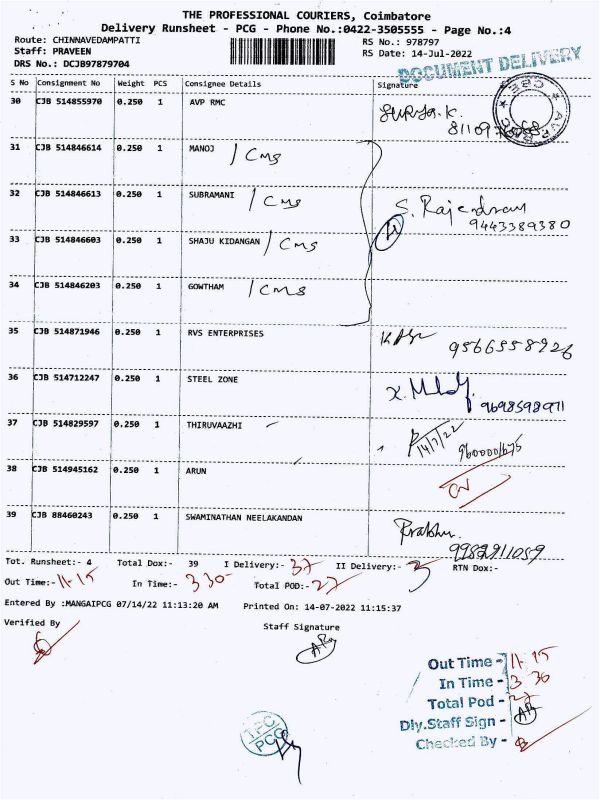 THE PROFESSIONAL COURIERS, Coimbatore
Delivery Runsheet - PCG - Phone No.:0422-3505555 - Page No.:4
Route: CHINNAVEDAMPATTI RS No.: 978797
Staff: PRAVEEN RS Date: 14-Jul-2022
DRS No.: DCJB97879704 DOCUMENT DELIVERY
S No Consignment No Weight PCS Consignee Details Signature
30 CJB 514855970 0.250 1 AVP RMC
31 CJB 514846614 0.250 1 MANOJ / CMS
32 CJB 514846613 0.250 1 SUBRAMANI / CMS
S. Rajendran
9443389380
33 CJB 514846603 0.250 1 SHAJU KIDANGAN / CMS
34 CJB 514846203 0.250 1 GOWTHAM / CMS
35 CJB 514871946 0.250 1 RVS ENTERPRISES
9566558926
36 CJB 514712247 0.250 1 STEEL ZONE
9698598971
37 CJB 514829597 0.250 1 THIRUVAAZHI
14/7/22
38 CJB 514945162 0.250 1 ARUN
39 CJB 88460243 0.250 1 SWAMINATHAN NEELAKANDAN
Prabhu
9982911059
Tot. Runsheet:- 4 Total Dox:- 39 I Delivery:- 37 II Delivery:- 3 RTN Dox:-
Out Time:- 11-15 In Time:- 330 Total POD:- 27
Entered By :MANGAIPCG 07/14/22 11:13:20 AM Printed On: 14-07-2022 11:15:37
Verified By Staff Signature
Out Time - 11 15
In Time - 3 30
Total Pod - 27
Dly.Staff Sign -
Checked By -
TPC
PCG